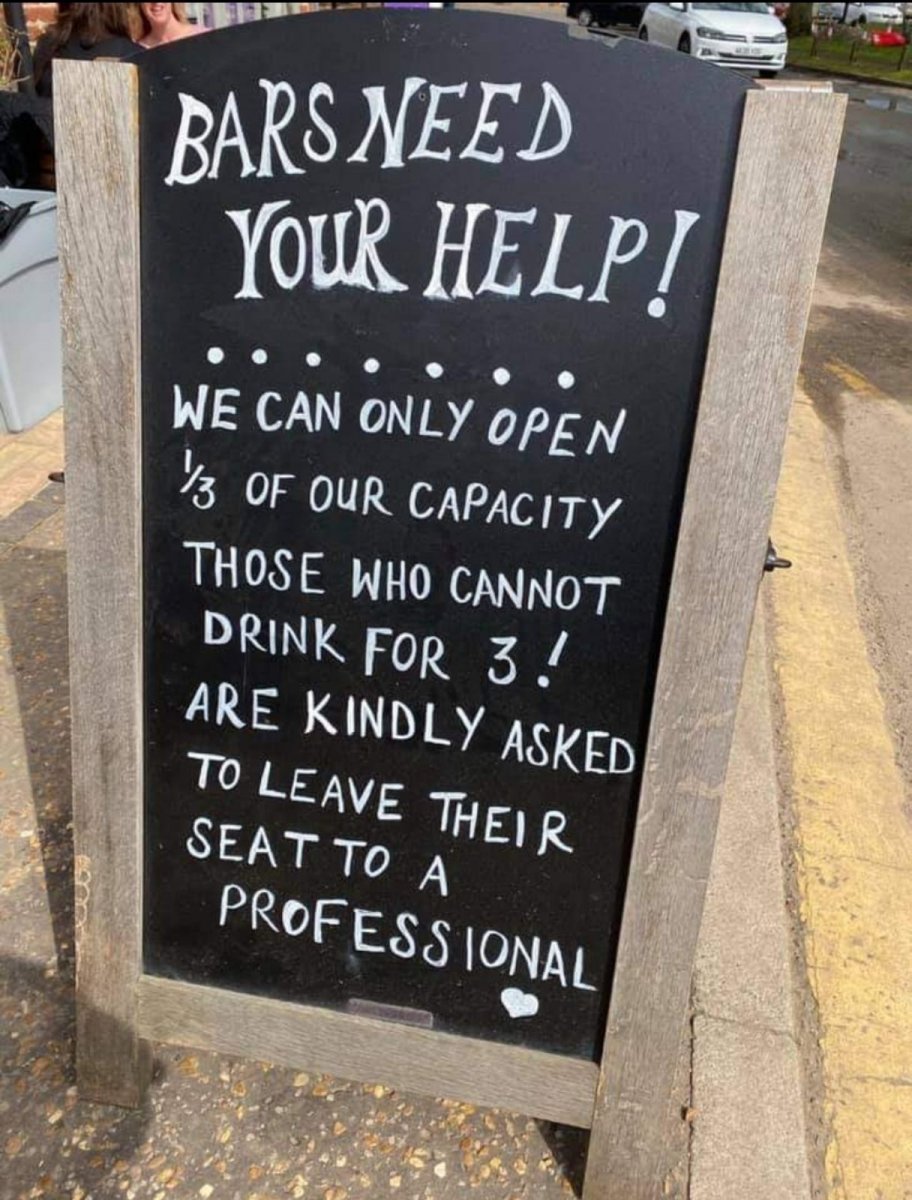 BARS NEED
YOUR HELP!
.......
WE CAN ONLY OPEN
1/3 OF OUR CAPACITY
THOSE WHO CANNOT
DRINK FOR 3!
ARE KINDLY ASKED
TO LEAVE THEIR
SEAT TO A
PROFESSIONAL
♥